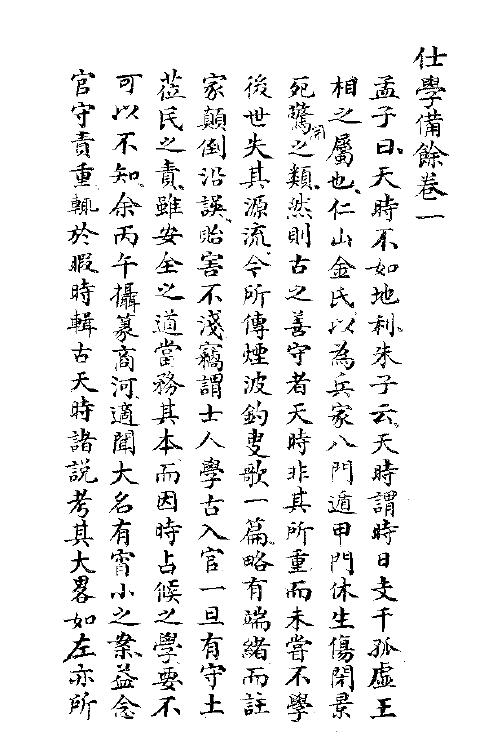 仕學備餘卷一
孟子曰天時不如地利朱子云天時謂時日支干孤虛王
相之屬也仁山金氏以為兵家八門遁甲門休生傷閉景
死驚開之類然則古之善守者天時非其所重而未嘗不學
後世失其源流今所傳煙波釣叟歌一篇略有端緒而註
家顛倒沿誤貽害不淺竊謂士人學古入官一旦有守土
蒞民之責雖安全之道當務其本而因時占候之學要不
可以不知余丙午攝篆商河適聞大名有宵小之案益念
官守責重輒於暇時輯古天時諸說考其大畧如左亦所